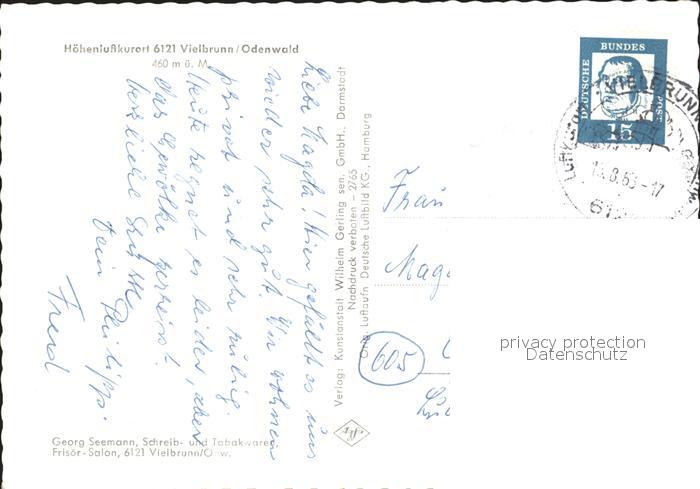 Höhenluftkurort 6121 Vielbrunn/Odenwald
460 m ü. M.
Liebe Magda! Hier gefällt es uns
wieder sehr gut. Wir wohnen
privat und sehr ruhig.
Heute regnet es leider, aber
das Gewölke zerreisst!
herzliche Grüße
Dein Philipp.
Fried
Verlag: Kunstanstalt Wilhelm Gerling sen. GmbH., Darmstadt
Nachdruck verboten – 2/65
Orig. Luftaufn Deutsche Luftbild KG., Hamburg
DEUTSCHE
BUNDES
POST
15
VIELBRUNN
.8.65-17
612
Frau
Mag
605
privacy protection
Datenschutz
Georg Seemann, Schreib- und Tabakwaren,
Frisör-Salon, 6121 Vielbrunn/Odw.